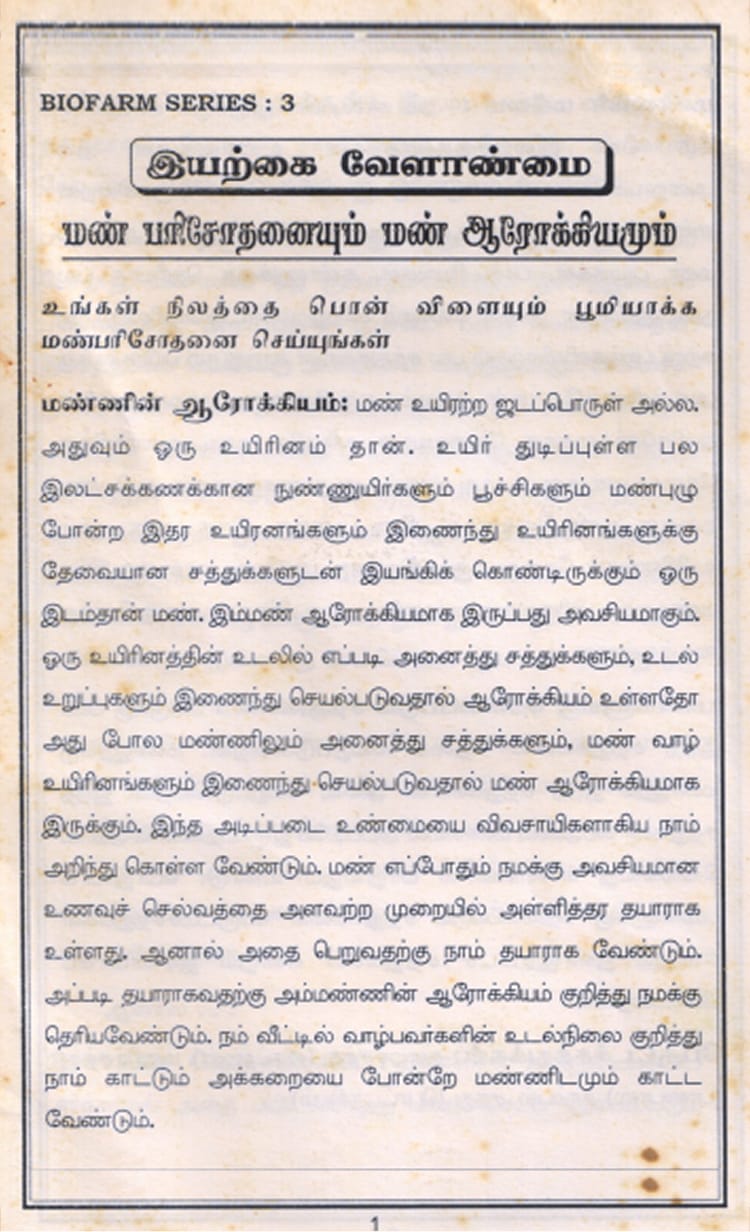 BIOFARM SERIES : 3
இயற்கை வேளாண்மை
மண் பரிசோதனையும் மண் ஆரோக்கியமும்
உங்கள் நிலத்தை பொன் விளையும் பூமியாக்க
மண்பரிசோதனை செய்யுங்கள்
மண்ணின் ஆரோக்கியம்: மண் உயிரற்ற ஜடப்பொருள் அல்ல.
அதுவும் ஒரு உயிரினம் தான். உயிர் துடிப்புள்ள பல
இலட்சக்கணக்கான நுண்ணுயிர்களும் பூச்சிகளும் மண்புழு
போன்ற இதர உயிரனங்களும் இணைந்து உயிரினங்களுக்கு
தேவையான சத்துக்களுடன் இயங்கிக் கொண்டிருக்கும் ஒரு
இடம்தான் மண். இம்மண் ஆரோக்கியமாக இருப்பது அவசியமாகும்.
ஒரு உயிரினத்தின் உடலில் எப்படி அனைத்து சத்துக்களும், உடல்
உறுப்புகளும் இணைந்து செயல்படுவதால் ஆரோக்கியம் உள்ளதோ
அது போல மண்ணிலும் அனைத்து சத்துக்களும், மண் வாழ்
உயிரினங்களும் இணைந்து செயல்படுவதால் மண் ஆரோக்கியமாக
இருக்கும். இந்த அடிப்படை உண்மையை விவசாயிகளாகிய நாம்
அறிந்து கொள்ள வேண்டும். மண் எப்போதும் நமக்கு அவசியமான
உணவுச் செல்வத்தை அளவற்ற முறையில் அள்ளித்தர தயாராக
உள்ளது. ஆனால் அதை பெறுவதற்கு நாம் தயாராக வேண்டும்.
அப்படி தயாராகவதற்கு அம்மண்ணின் ஆரோக்கியம் குறித்து நமக்கு
தெரியவேண்டும். நம் வீட்டில் வாழ்பவர்களின் உடல்நிலை குறித்து
நாம் காட்டும் அக்கறையை போன்றே மண்ணிடமும் காட்ட
வேண்டும்.
1